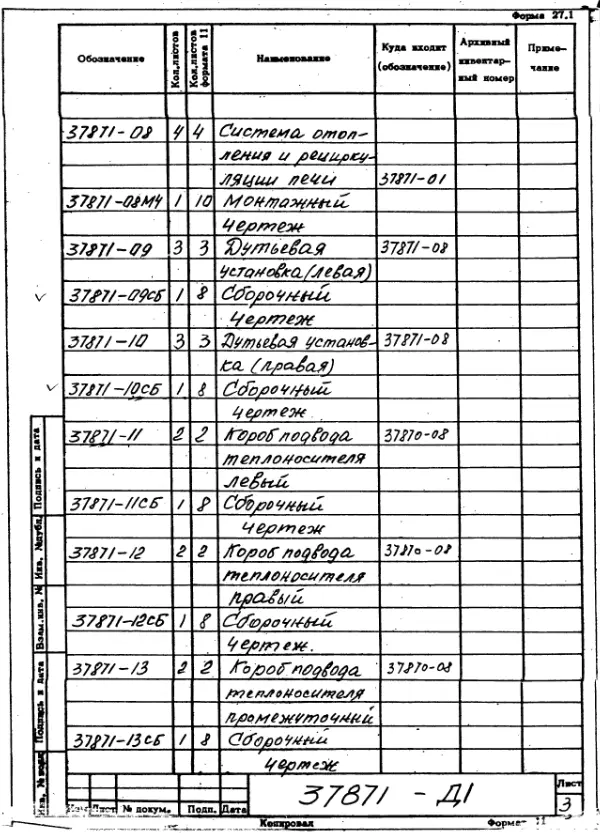 Форма 27.1
Обозначение Кол.листов Кол.листов формата 11 Наименование Куда входит (обозначение) Архивный инвентарный номер Примечание
37871-08 4 4 Система отоп-
ления и рецирку-
ляции печи 37871-01
37871-08МЧ 1 10 Монтажный
чертеж
37871-09 3 3 Дутьевая 37871-08
установка (левая)
37871-09СБ 1 8 Сборочный
чертеж
37871-10 3 3 Дутьевая установ- 37871-08
ка (правая)
37871-10СБ 1 8 Сборочный
чертеж
37871-11 2 2 Короб подвода 37870-08
теплоносителя
левый
37871-11СБ 1 8 Сборочный
чертеж
37871-12 2 2 Короб подвода 37870-08
теплоносителя
правый
37871-12СБ 1 8 Сборочный
чертеж.
37871-13 2 2 Короб подвода 37870-08
теплоносителя
промежуточный
37871-13СБ 1 8 Сборочный
чертеж
Подпись и дата
Инв. №дубл.
Взам.инв. №
Подпись и дата
Инв. №подл.
37871 - Д1
Лист
3
Изм Лист № докум. Подп. Дата
Копировал Формат 11